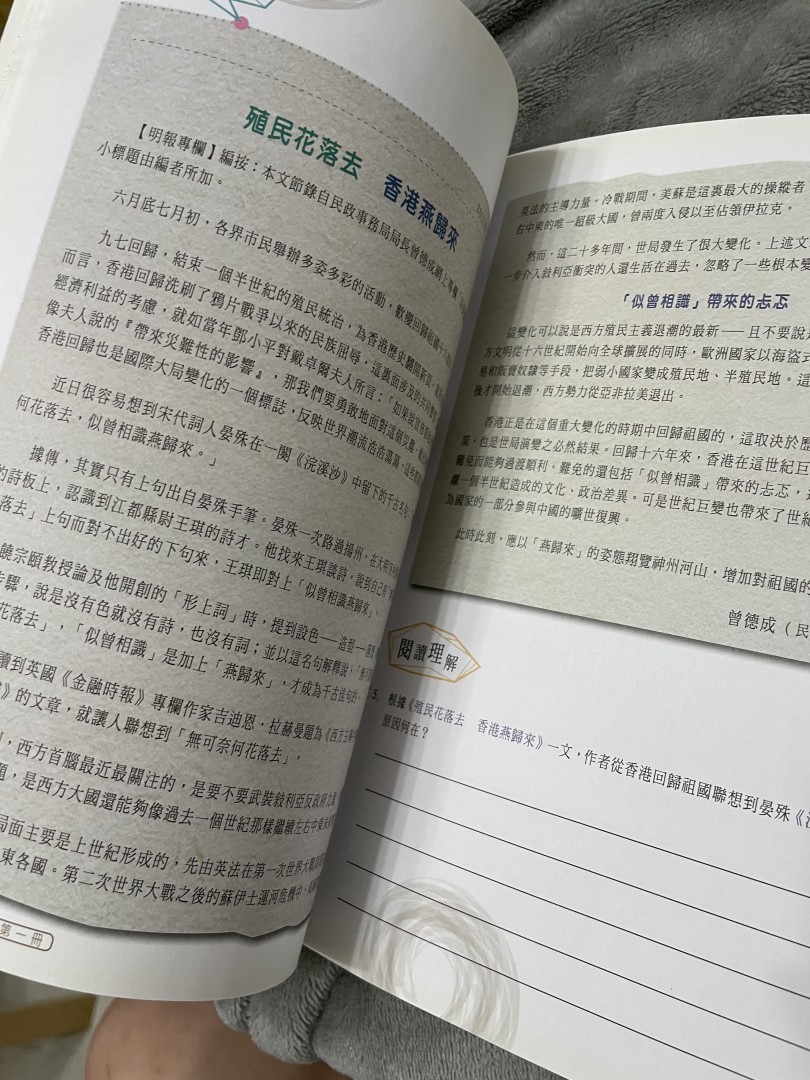 殖民花落去 香港燕歸來
【明報專欄】編按：本文節錄自民政事務局局長曾德成網上專欄，
小標題由編者所加。
六月底七月初，各界市民舉辦多姿多彩的活動，歡慶回歸祖國十六
九七回歸，結束一個半世紀的殖民統治，為香港歷史翻開新頁。
而言，香港回歸洗刷了鴉片戰爭以來的民族屈辱；這裏面涉及的
經濟利益的考慮，就如當年鄧小平對戴卓爾夫人所言：「如果說宣佈
像夫人說的『帶來災難性的影響』，那我們要勇敢地面對這個災難，
香港回歸也是國際大局變化的一個標誌，反映世界潮流浩浩蕩蕩，
近日很容易想到宋代詞人晏殊在一闋《浣溪沙》中留下的千古名句
何花落去，似曾相識燕歸來。」
據傳，其實只有上句出自晏殊手筆。晏殊一次路過揚州，在大明寺
的詩板上，認識到江都縣尉王琪的詩才。他找來王琪談詩，說到自己有
落去」上句而對不出好的下句來，王琪即對上「似曾相識燕歸來」，
饒宗頤教授論及他開創的「形上詞」時，提到設色——造型——
步驟，說是沒有色就沒有詩，也沒有詞；並以這名句解釋說，「無可奈
花落去」，「似曾相識」是加上「燕歸來」，才成為千古佳句的。
讀到英國《金融時報》專欄作家吉迪恩．拉赫曼題為《西方主
》的文章，就讓人聯想到「無可奈何花落去」，
，西方首腦最近最關注的，是要不要武裝敍利亞反政府力量
題，是西方大國還能夠像過去一個世紀那樣繼續左右中東
局面主要是上世紀形成的，先由英法在第一次世界大戰
東各國。第二次世界大戰之後的蘇伊士運河危機中，
第一冊
英法的主導力量。冷戰期間，美蘇是這裏最大的操縱者，
右中東的唯一超級大國，曾兩度入侵以至佔領伊拉克。
然而，這二十多年間，世局發生了很大變化。上述文
一步介入敍利亞衝突的人還生活在過去，忽略了一些根本變
「似曾相識」帶來的忐忑
這變化可以說是西方殖民主義退潮的最新——且不要說是
方文明從十六世紀開始向全球擴展的同時，歐洲國家以海盜式
易和販賣奴隸等手段，把弱小國家變成殖民地、半殖民地。這
後才開始退潮，西方勢力從亞非拉美退出。
香港正是在這個重大變化的時期中回歸祖國的，這取決於歷
策，也是世局演變之必然結果。回歸十六年來，香港在這世紀巨
難免而能夠過渡順利。難免的還包括「似曾相識」帶來的忐忑，
離一個半世紀造成的文化、政治差異。可是世紀巨變也帶來了世紀
為國家的一部分參與中國的曠世復興。
此時此刻，應以「燕歸來」的姿態翔覽神州河山，增加對祖國的
曾德成（民
閱讀理解
5. 根據《殖民花落去 香港燕歸來》一文，作者從香港回歸祖國聯想到晏殊《浣
原因何在？